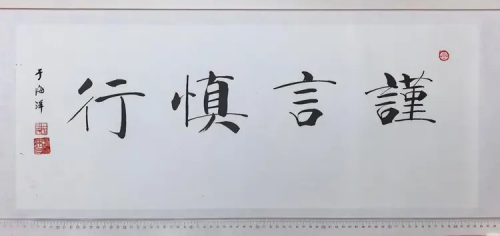 謹言慎行
于海洋